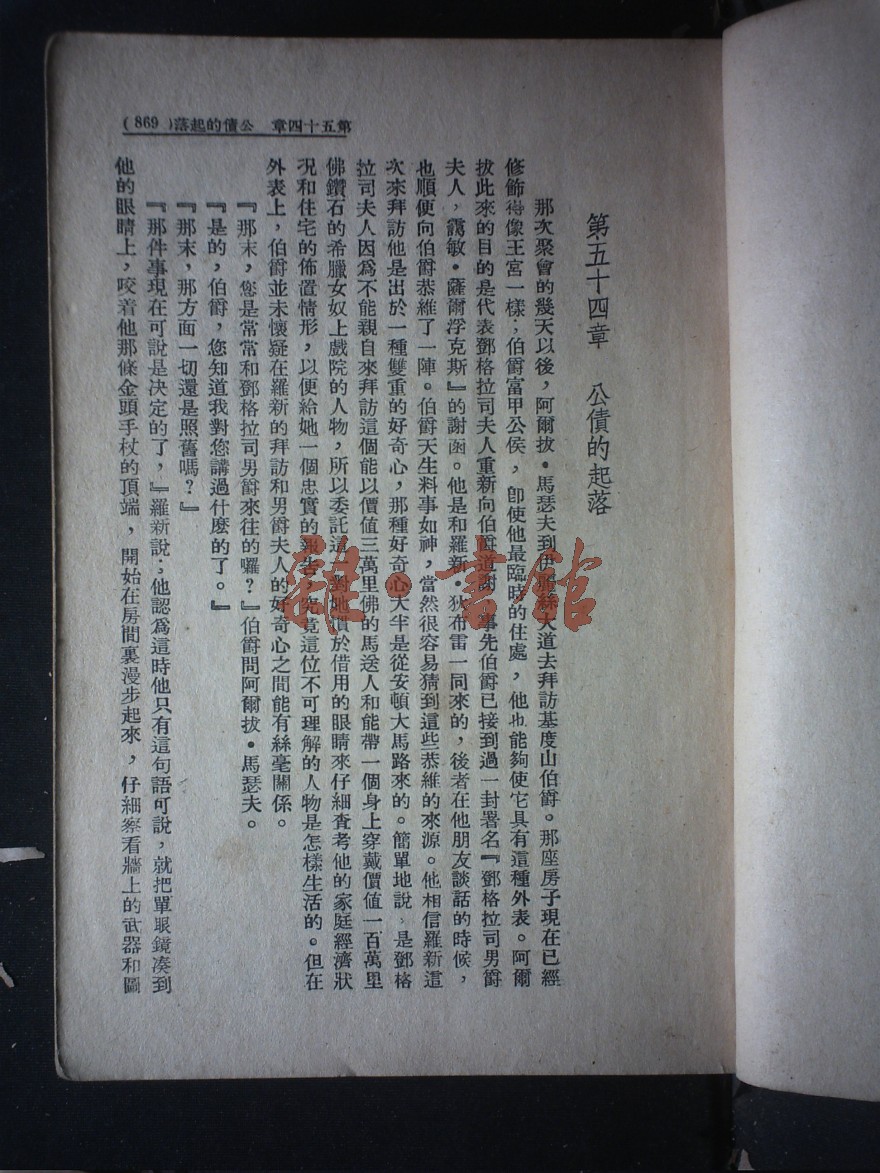 第五十四章　公債的起落（869）
第五十四章　公債的起落
那次聚會的幾天以後，阿爾拔·馬瑟夫到伊麗絲大道去拜訪基度山伯爵。那座房子現在已經
修飾得像王宮一樣；伯爵富甲公侯，卽使他最臨時的住處，他也能夠使它具有這種外表。阿爾
拔此來的目的是代表鄧格拉司夫人重新向伯爵道謝，事先伯爵已接到過一封署名『鄧格拉司男爵
夫人，靄敏·薩爾浮克斯』的謝函。他是和羅新·狄布雷一同來的，後者在他朋友談話的時候，
也順便向伯爵恭維了一陣。伯爵天生料事如神，當然很容易猜到這些恭維的來源。他相信羅新這
次來拜訪他是出於一種雙重的好奇心，那種好奇心大半是從安頓大馬路來的。簡單地說，是鄧格
拉司夫人因爲不能親自來拜訪這個能以價值三萬里佛的馬送人和能帶一個身上穿戴價值一百萬里
佛鑽石的希臘女奴上戲院的人物，所以委託這一對她慣於借用的眼睛來仔細查考他的家庭經濟狀
况和住宅的佈置情形，以便給她一個忠實的報告，究竟這位不可理解的人物是怎樣生活的。但在
外表上，伯爵並未懷疑在羅新的拜訪和男爵夫人的好奇心之間能有絲毫關係。
『那末，您是常常和鄧格拉司男爵來往的囉？』伯爵問阿爾拔·馬瑟夫。
『是的，伯爵，您知道我對您講過什麽的了。』
『那末，那方面一切還是照舊嗎？』
『那件事現在可說是決定的了，』羅新說；他認爲這時他只有這句話可說，就把單眼鏡湊到
他的眼睛上，咬着他那條金頭手杖的頂端，開始在房間裏漫步起來，仔細察看牆上的武器和圖
雜·書館